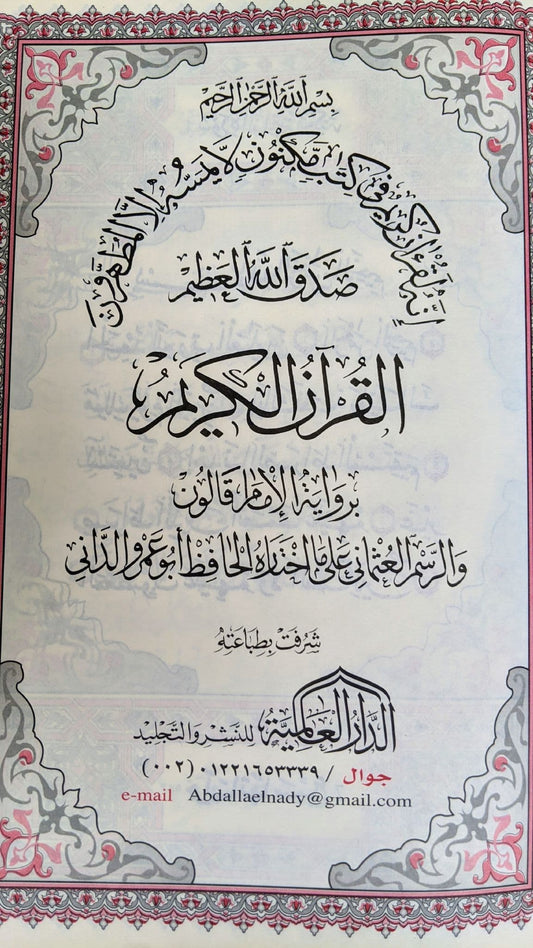 بِسْمِ اللَّهِ الرَّحْمَٰنِ الرَّحِيمِ
إِنَّهُ لَقُرْءَانٌ كَرِيمٌ فِي كِتَابٍ مَّكْنُونٍ لَّا يَمَسُّهُ إِلَّا الْمُطَهَّرُونَ
صَدَقَ اللَّهُ الْعَظِيمُ
القُرْآنُ الكَرِيمُ
بِرِوَايَةِ الْإِمَامِ قَالُونَ
وَالرَّسْمِ العُثْمَانِي عَلَى مَا اخْتَارَهُ الحَافِظُ أَبُو عَمْرٍو الدَّانِي
شَرُفَتْ بِطِبَاعَتِهِ
الدَّارُ العَالَمِيَّةُ لِلنَّشْرِ وَالتَّجْلِيد
جوال / ٠١٢٢١٦٥٣٣٣٩ (٠٠٢)
e-mail Abdallaelnady@gmail.com